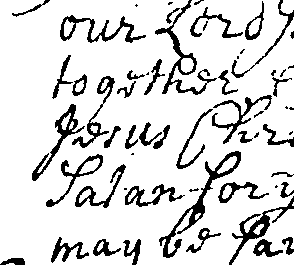 our Lord
together
Jesus Chr
Satan for
may be